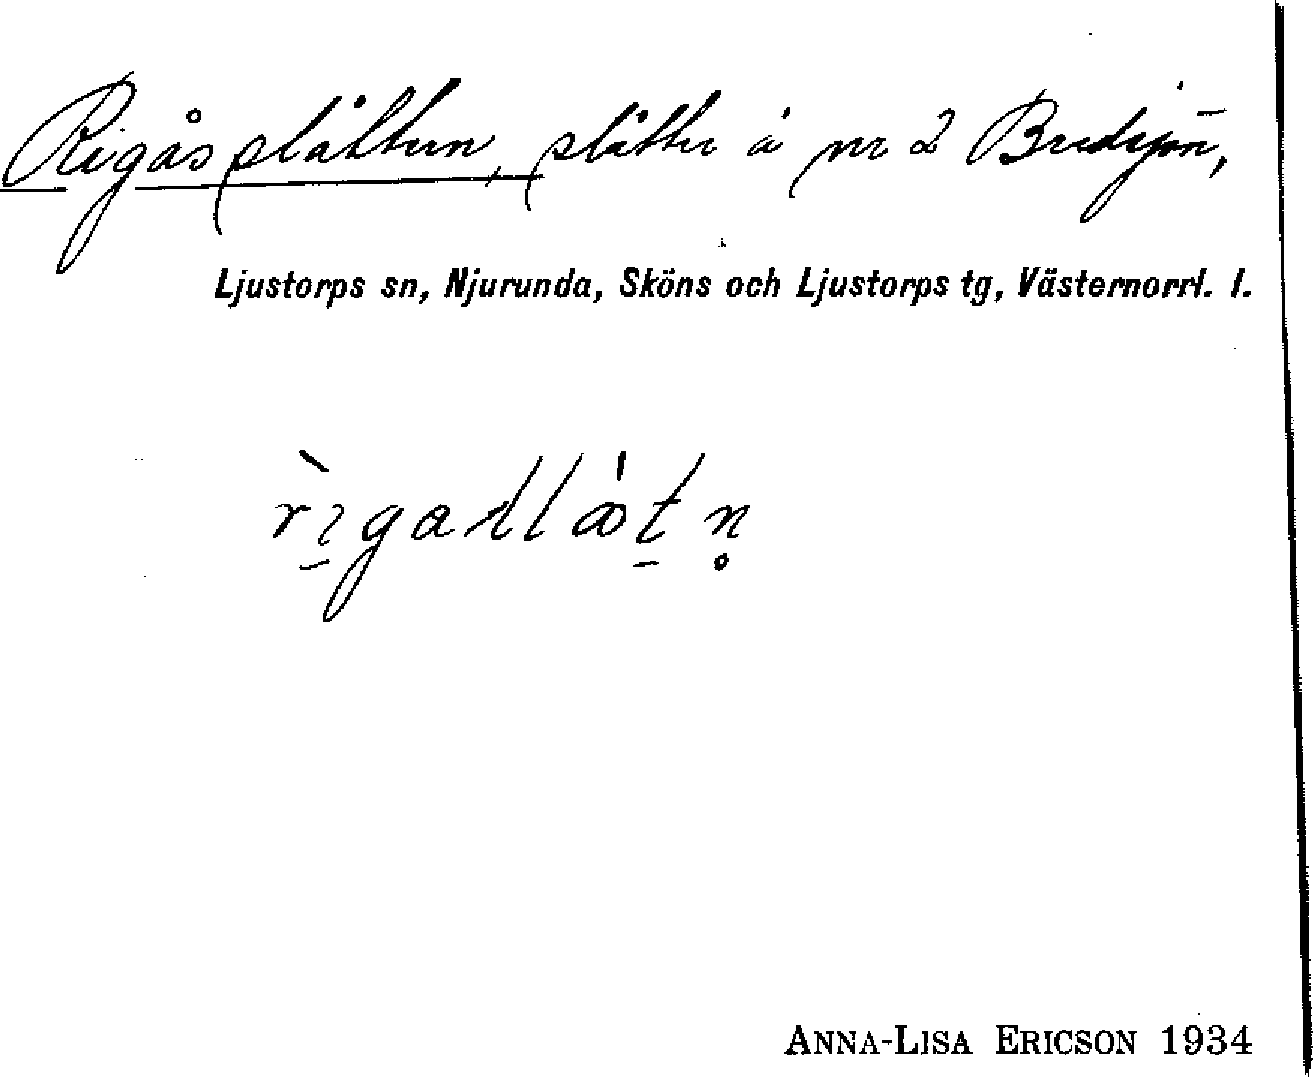 Rigåsslåtten, slåtter å nr 2 Bredsjön,
Ljustorps sn, Njurunda, Sköns och Ljustorps tg, Västernorrl. l.
ANNA-LISA ERICSON 1934